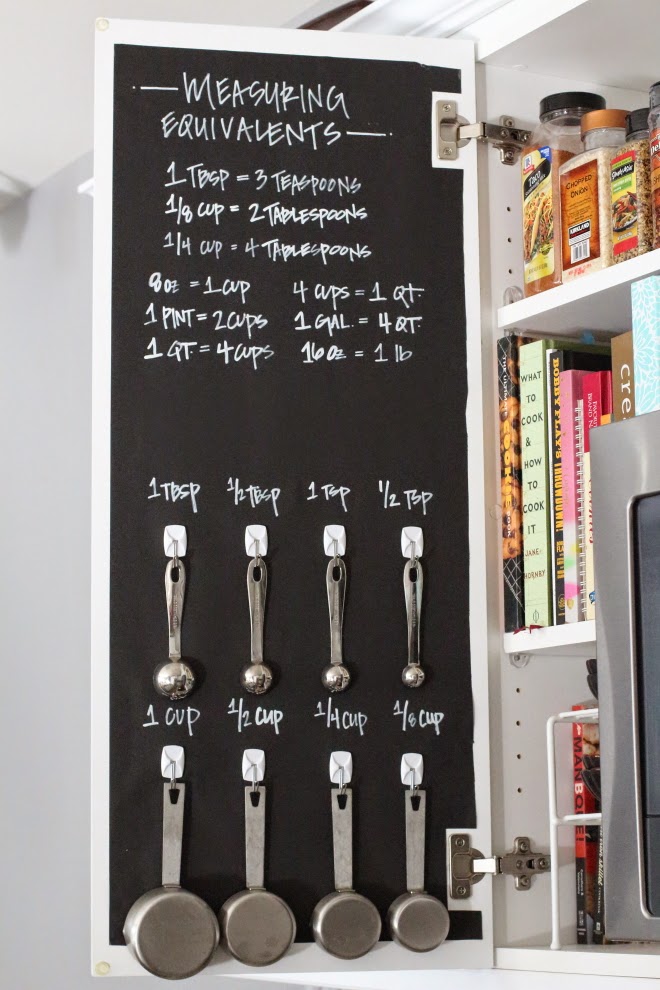 MEASURING
EQUIVALENTS
1 TBSP = 3 TEASPOONS
1/8 CUP = 2 TABLESPOONS
1/4 CUP = 4 TABLESPOONS
8 oz = 1 CUP
4 CUPS = 1 QT.
1 PINT = 2 CUPS
1 GAL. = 4 QT.
1 QT. = 4 CUPS
16 oz = 1 lb
1 TBSP
1/2 TBSP
1 TSP
1/2 TSP
1 CUP
1/2 CUP
1/4 CUP
1/8 CUP
TACO
CHOPPED
ONION
KIRKLAND
WHAT
TO
COOK
&
HOW
TO
COOK
IT
JANE
HORNBY
BOBBY FLAY'S
THROWDOWN!
cre